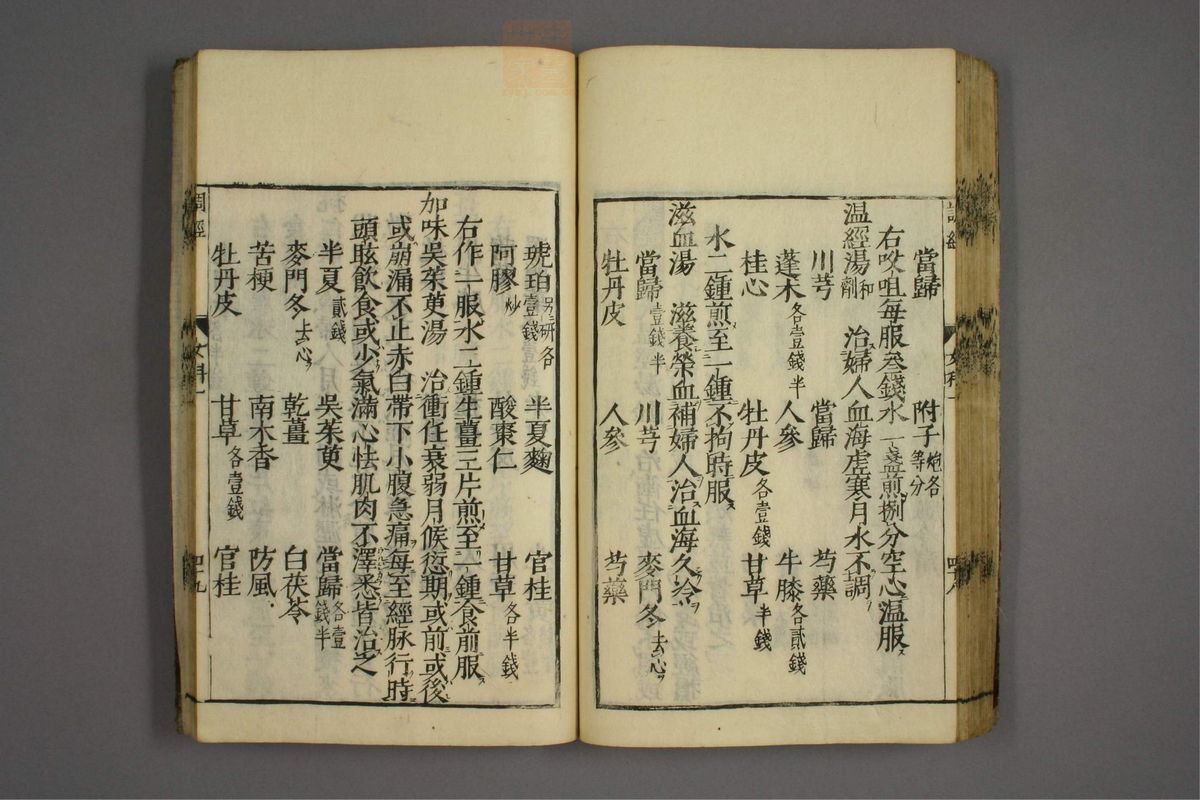 當歸 附子炮各等分
右㕮咀每服叄錢水一盞煎捌分空心溫服
溫經湯和劑 治婦人血海虛寒月水不調
川芎 當歸 芍藥
蓬朮各壹錢半 人參 牛膝各貳錢
桂心 牡丹皮各壹錢 甘草半錢
水二鍾煎至一鍾不拘時服
滋血湯 滋養榮血補婦人治血海久冷
當歸壹錢半 川芎 麥門冬去心
牡丹皮 人參 芍藥
琥珀另研各壹錢 半夏麴 官桂
阿膠炒 酸棗仁 甘草各半錢
右作一服水二鍾生薑三片煎至一鍾食前服
加味吳茱萸湯 治衝任衰弱月候愆期或前或後
或崩漏不止赤白帶下小腹急痛每至經脉行時
頭眩飲食或少氣滿心怯肌肉不澤悉皆治之
半夏貳錢 吳茱萸 當歸各壹錢半
麥門冬去心 乾薑 白茯苓
苦梗 南木香 防風
牡丹皮 甘草各壹錢 官桂
調經 女科一 四十九